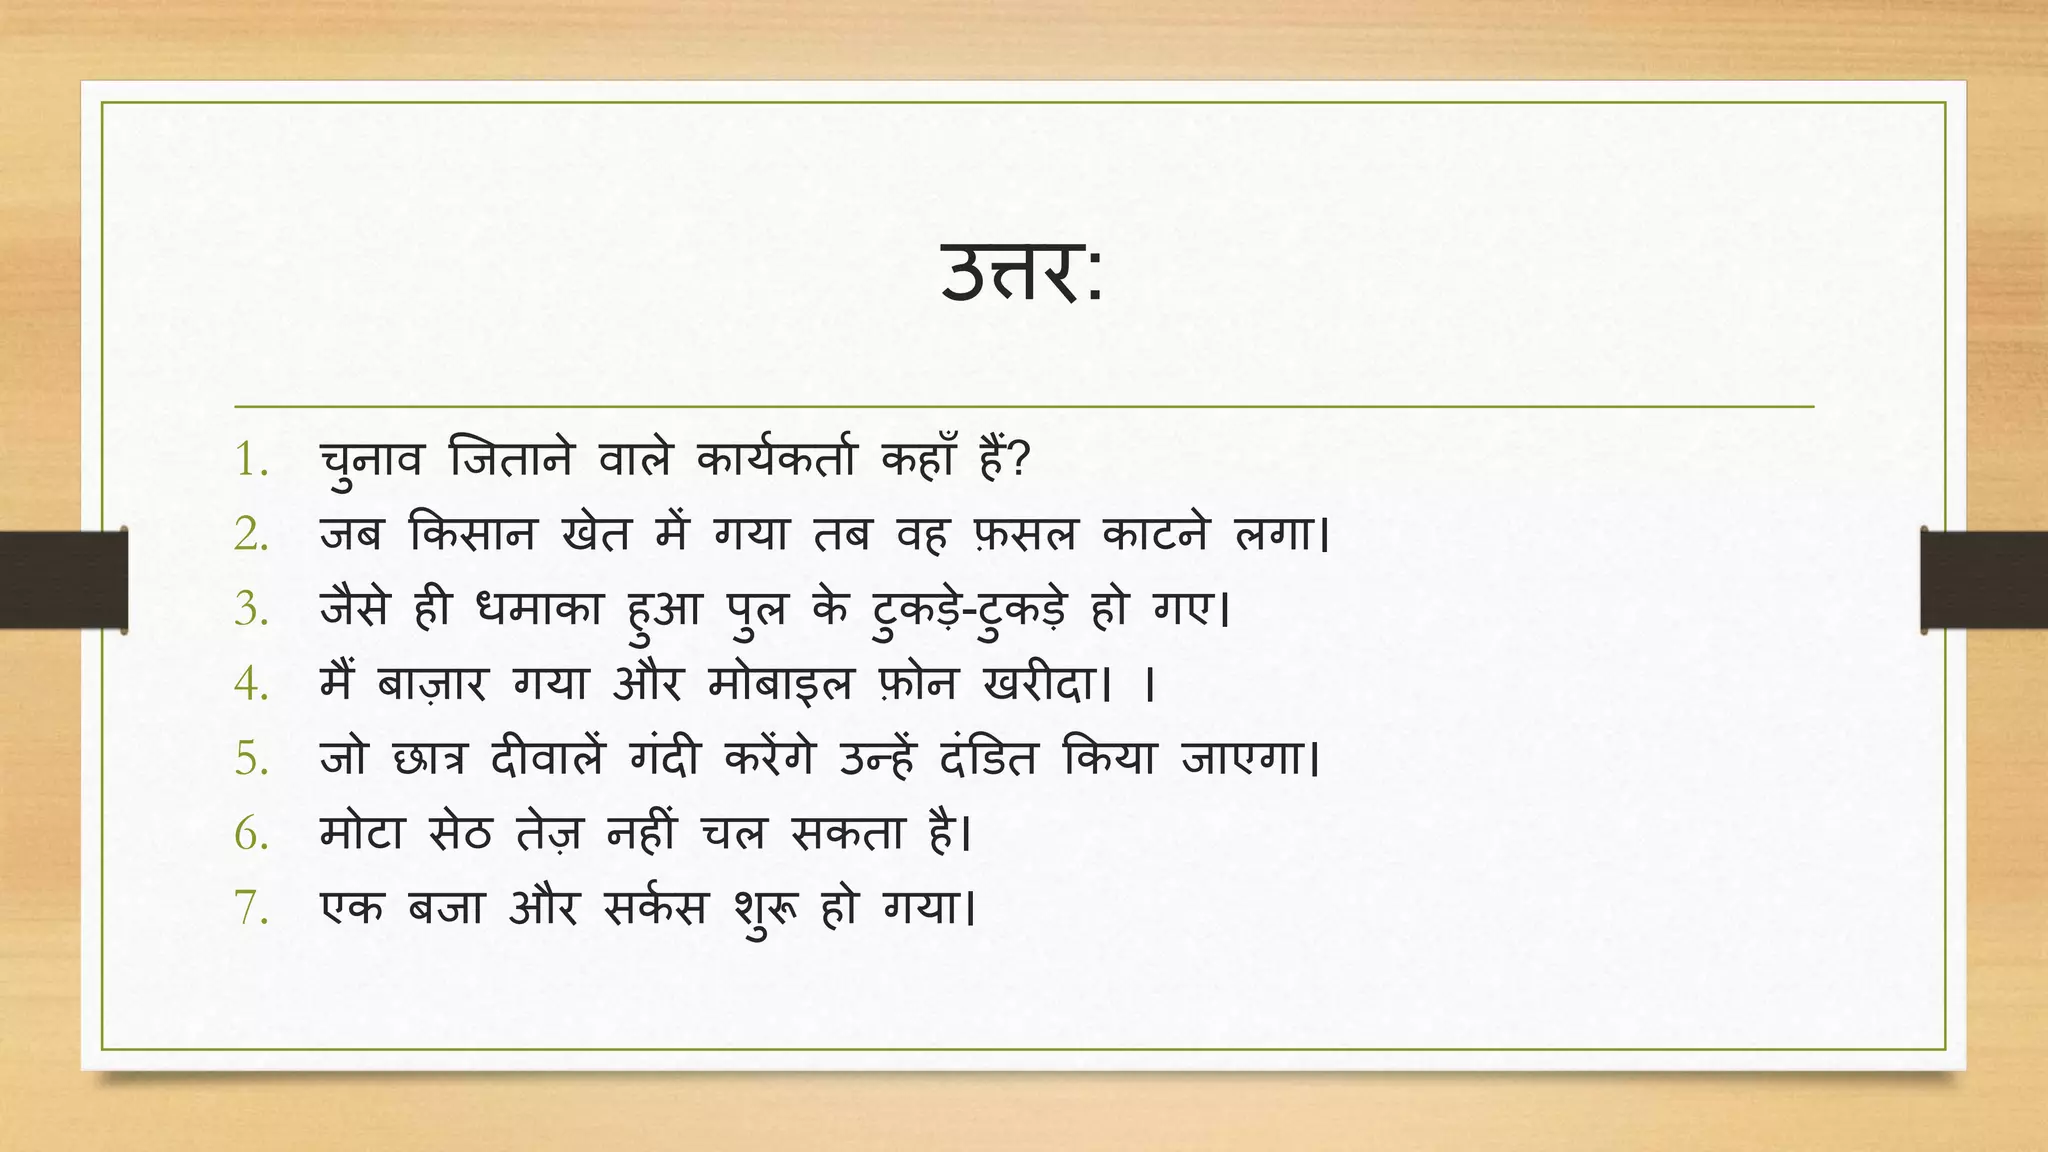 उत्तर:
1. चुनाव जिताने वाले कार्यकर्ता कहाँ हैं?
2. जब किसान खेत में गया तब वह फ़सल काटने लगा।
3. जैसे ही धमाका हुआ पुल के टुकड़े-टुकड़े हो गए।
4. मैं बाज़ार गया और मोबाइल फ़ोन खरीदा। ।
5. जो छात्र दीवालें गंदी करेंगे उन्हें दंडित किया जाएगा।
6. मोटा सेठ तेज़ नहीं चल सकता है।
7. एक बजा और सर्कस शुरू हो गया।